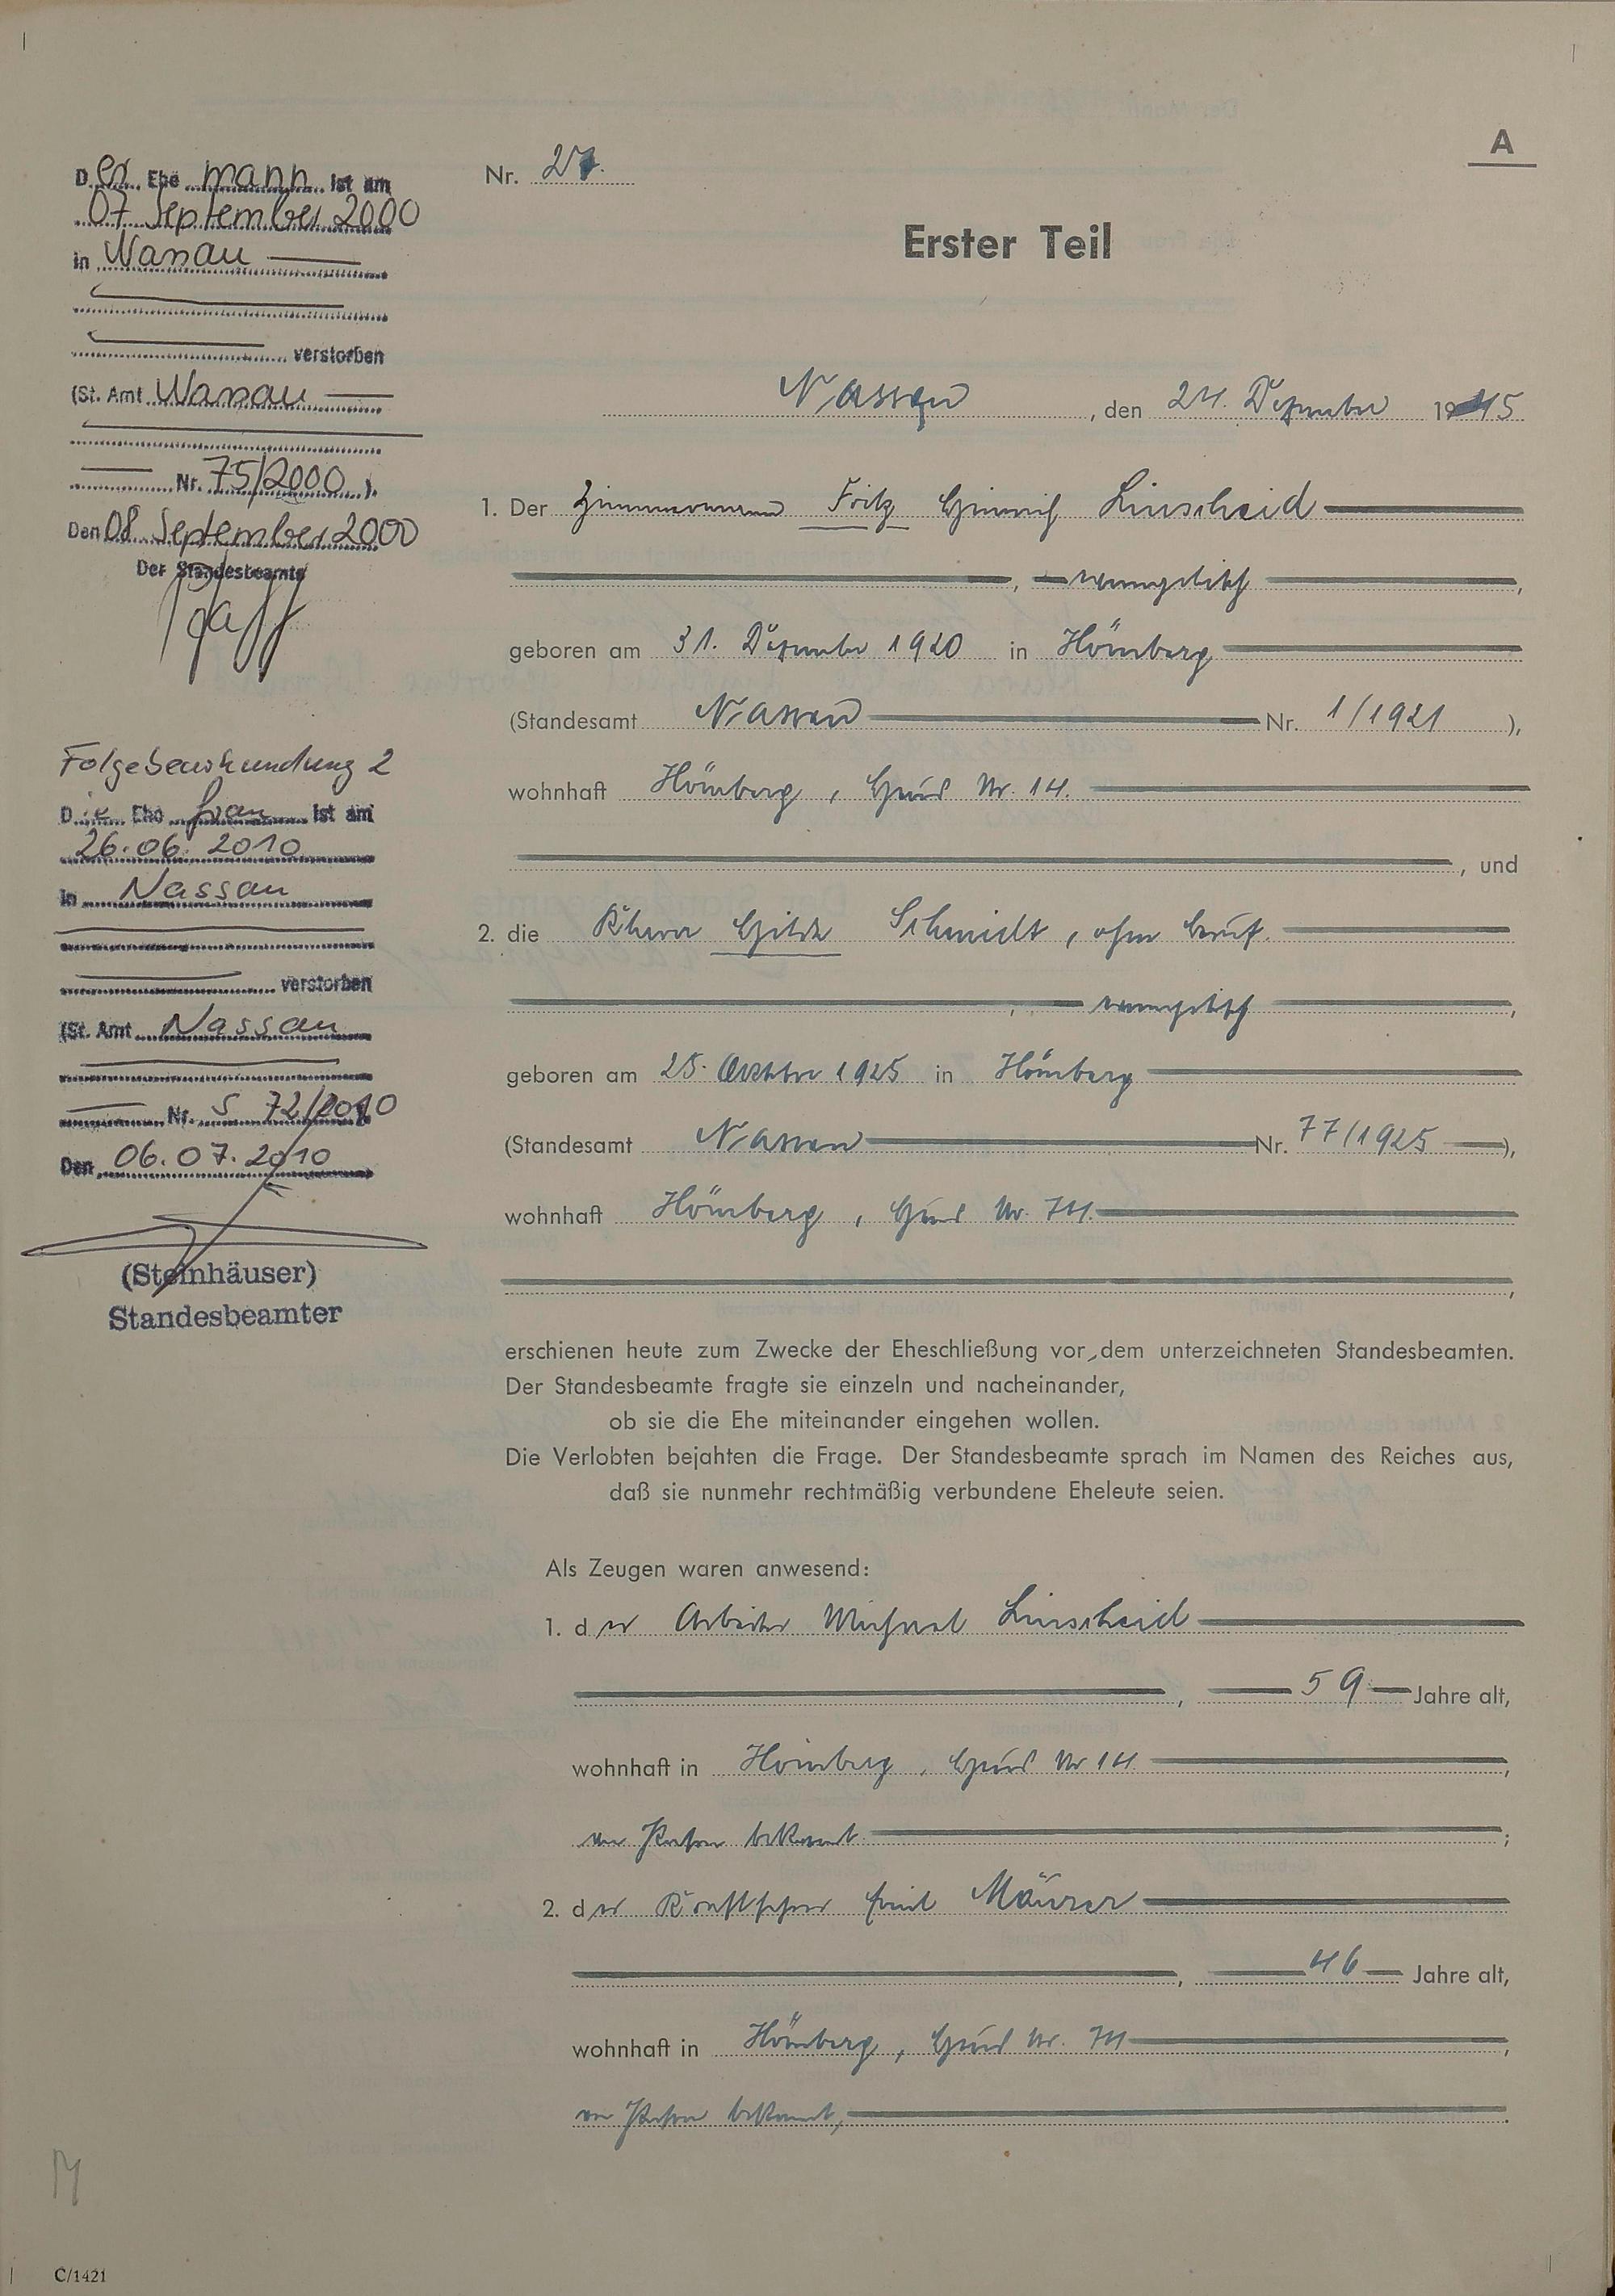 A
Nr. 27.
Erster Teil
Nassau, den 24. Dezember 1945
1. Der Zimmermann Fritz Heinrich Linscheid
, evangelisch,
geboren am 31. Dezember 1920 in Hömberg
(Standesamt Nassau Nr. 1/1921),
wohnhaft Hömberg, Haus Nr. 14.
, und
2. die Klara Hilda Schmidt, ohne Beruf.
, evangelisch,
geboren am 25. Oktober 1925 in Hömberg
(Standesamt Nassau Nr. 77/1925),
wohnhaft Hömberg, Haus Nr. 74.
,
erschienen heute zum Zwecke der Eheschließung vor dem unterzeichneten Standesbeamten.
Der Standesbeamte fragte sie einzeln und nacheinander,
ob sie die Ehe miteinander eingehen wollen.
Die Verlobten bejahten die Frage. Der Standesbeamte sprach im Namen des Reiches aus,
daß sie nunmehr rechtmäßig verbundene Eheleute seien.
Als Zeugen waren anwesend:
1. der Arbeiter Michael Linscheid
, 59 Jahre alt,
wohnhaft in Hömberg, Haus Nr 14,
von Person bekannt;
2. der Kraftfahrer Emil Mäurer
, 46 Jahre alt,
wohnhaft in Hömberg, Haus Nr. 74,
von Person bekannt,.
Der Ehe mann ist am
07 September 2000
in Nassau
verstorben
(St. Amt Nassau
Nr. 75/2000).
Den 08. September 2000
Der Standesbeamte
Pfaff
Folgebeurkundung 2
Die Ehe frau ist am
26.06.2010
in Nassau
verstorben
(St. Amt Nassau
Nr. S 72/2010
Den 06.07.2010
(Steinhäuser)
Standesbeamter
C/1421